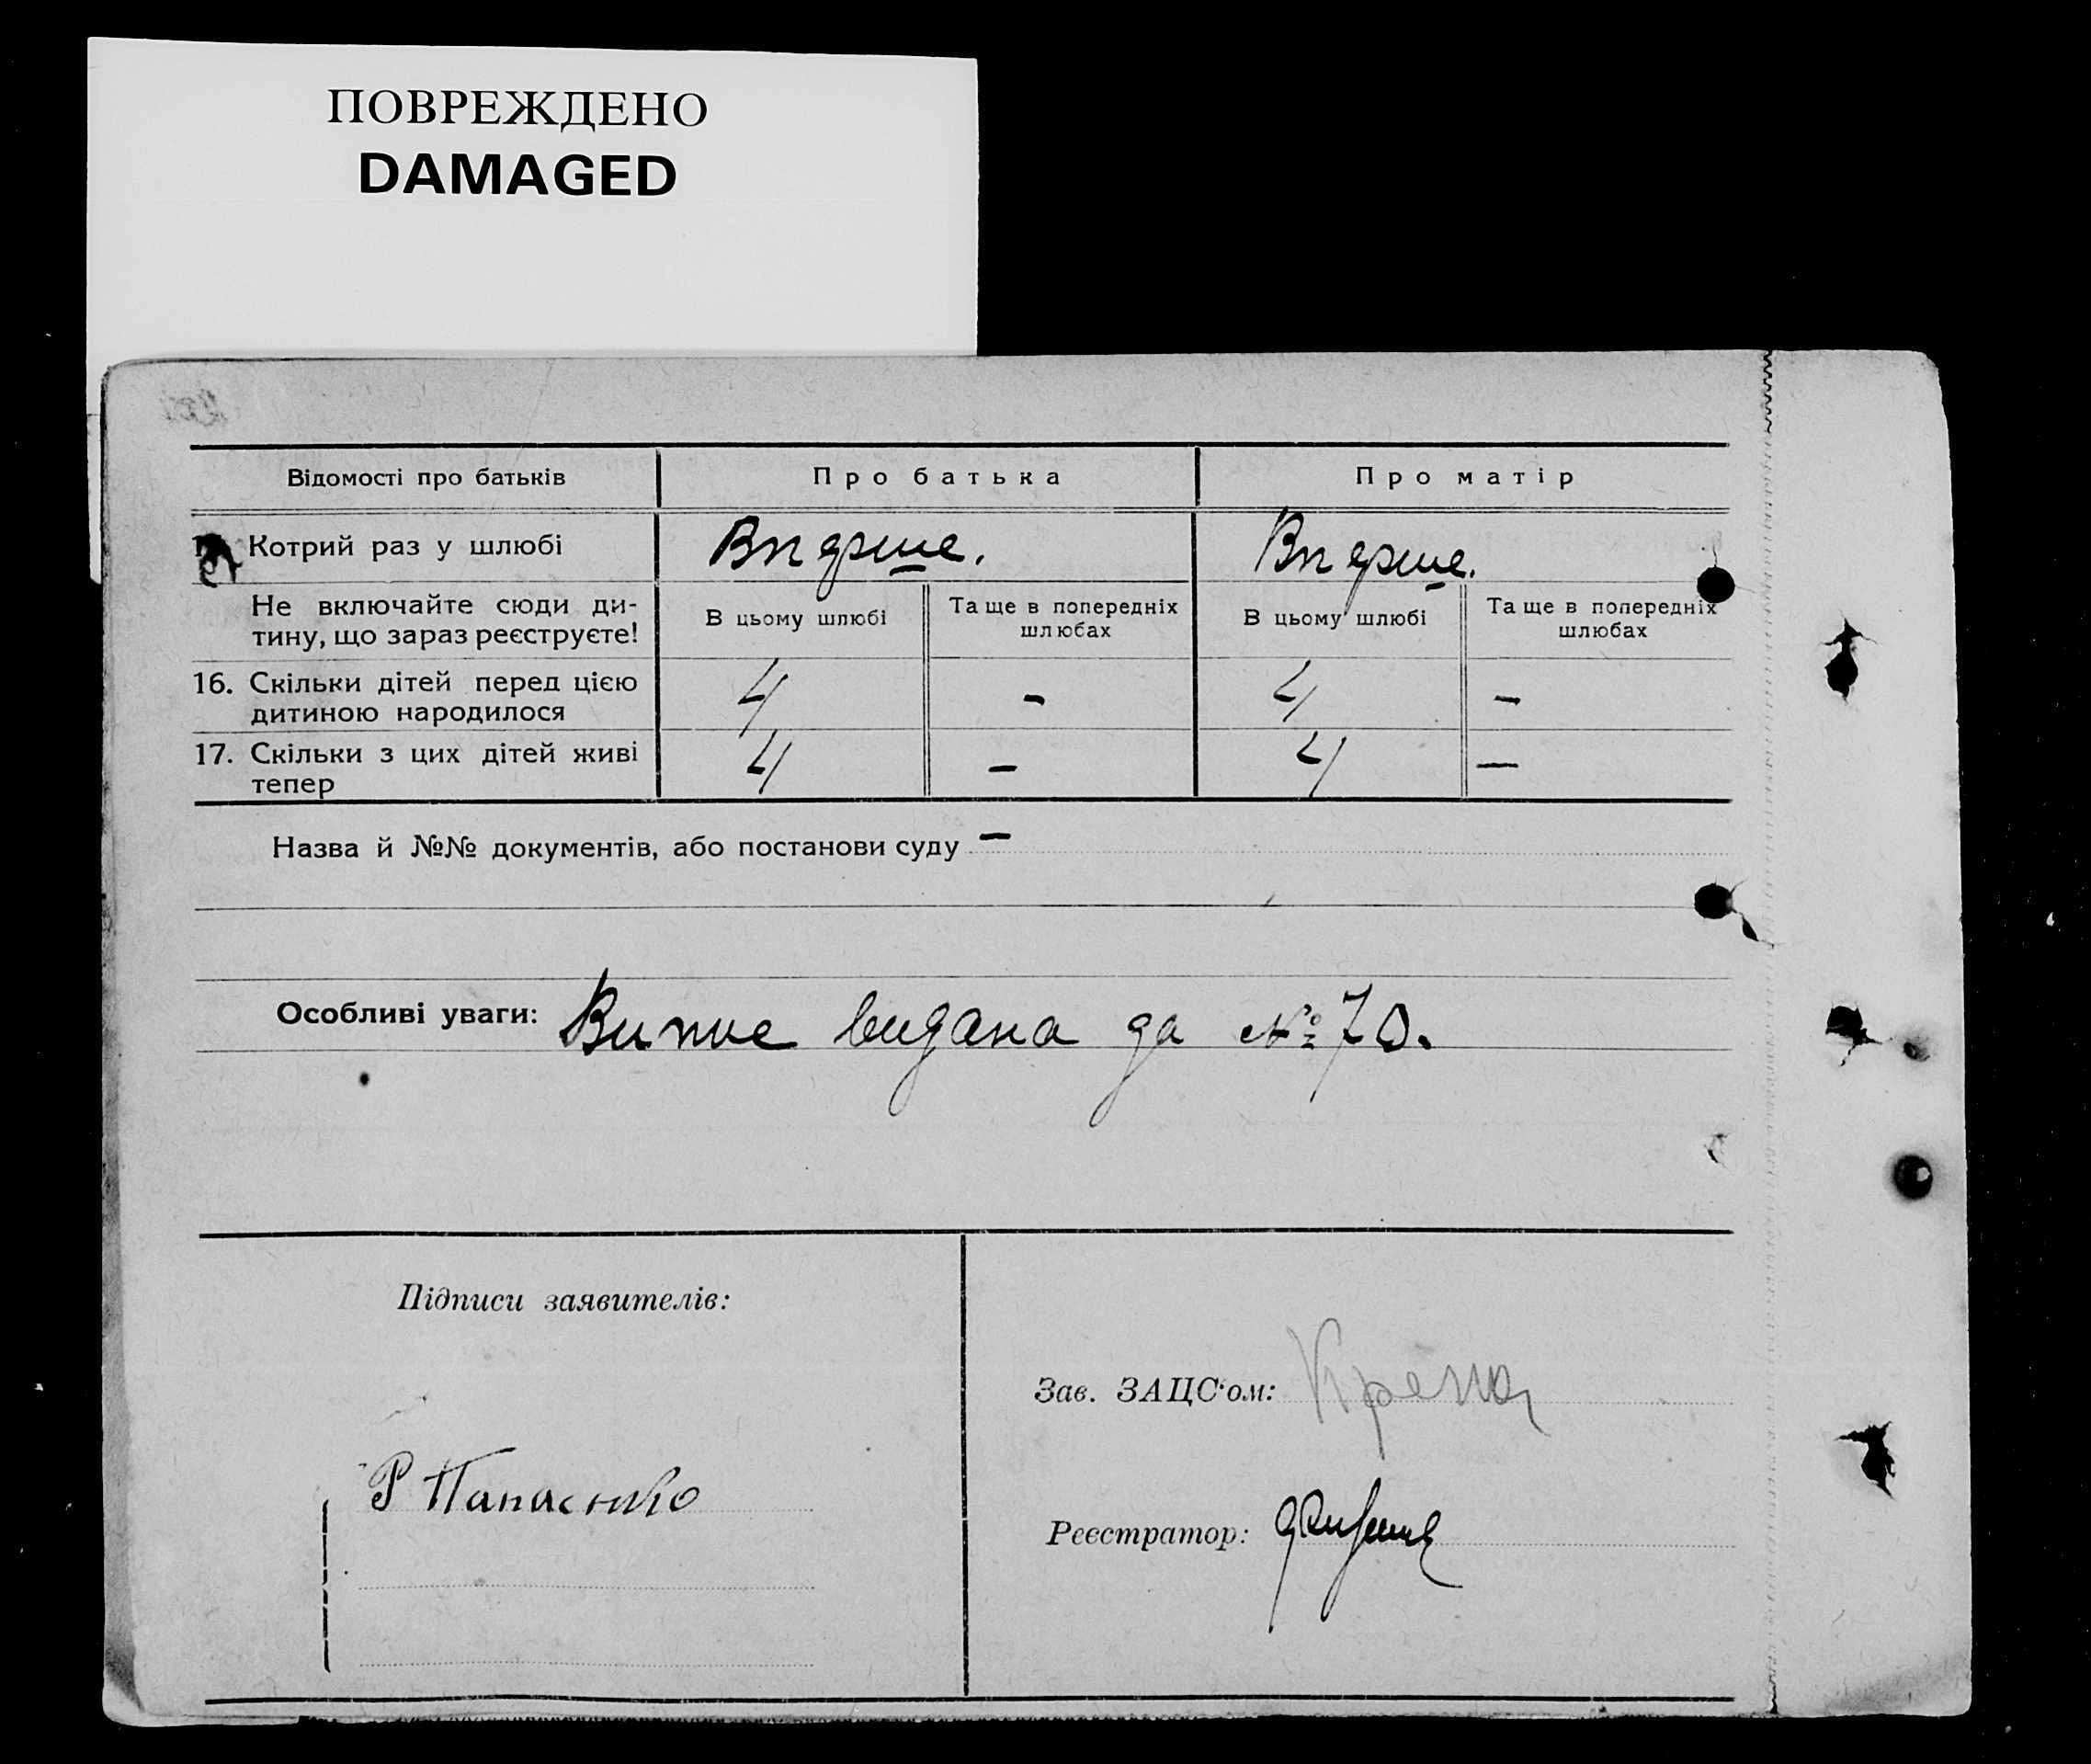 ПОВРЕЖДЕНО
DAMAGED
Відомості про батьків
Про батька
Про матір
Котрий раз у шлюбі
Вперше.
Вперше.
Не включайте сюди ди-
тину, що зараз реєструєте!
В цьому шлюбі
Та ще в попередніх
шлюбах
В цьому шлюбі
Та ще в попередніх
шлюбах
16. Скільки дітей перед цією
дитиною народилося
4
-
4
-
17. Скільки з цих дітей живі
тепер
4
-
4
-
Назва й №№ документів, або постанови суду -
Особливі уваги: видана за № 70.
Підписи заявителів:
Зав. ЗАЦС'ом:
Р Панасенко
Реєстратор: